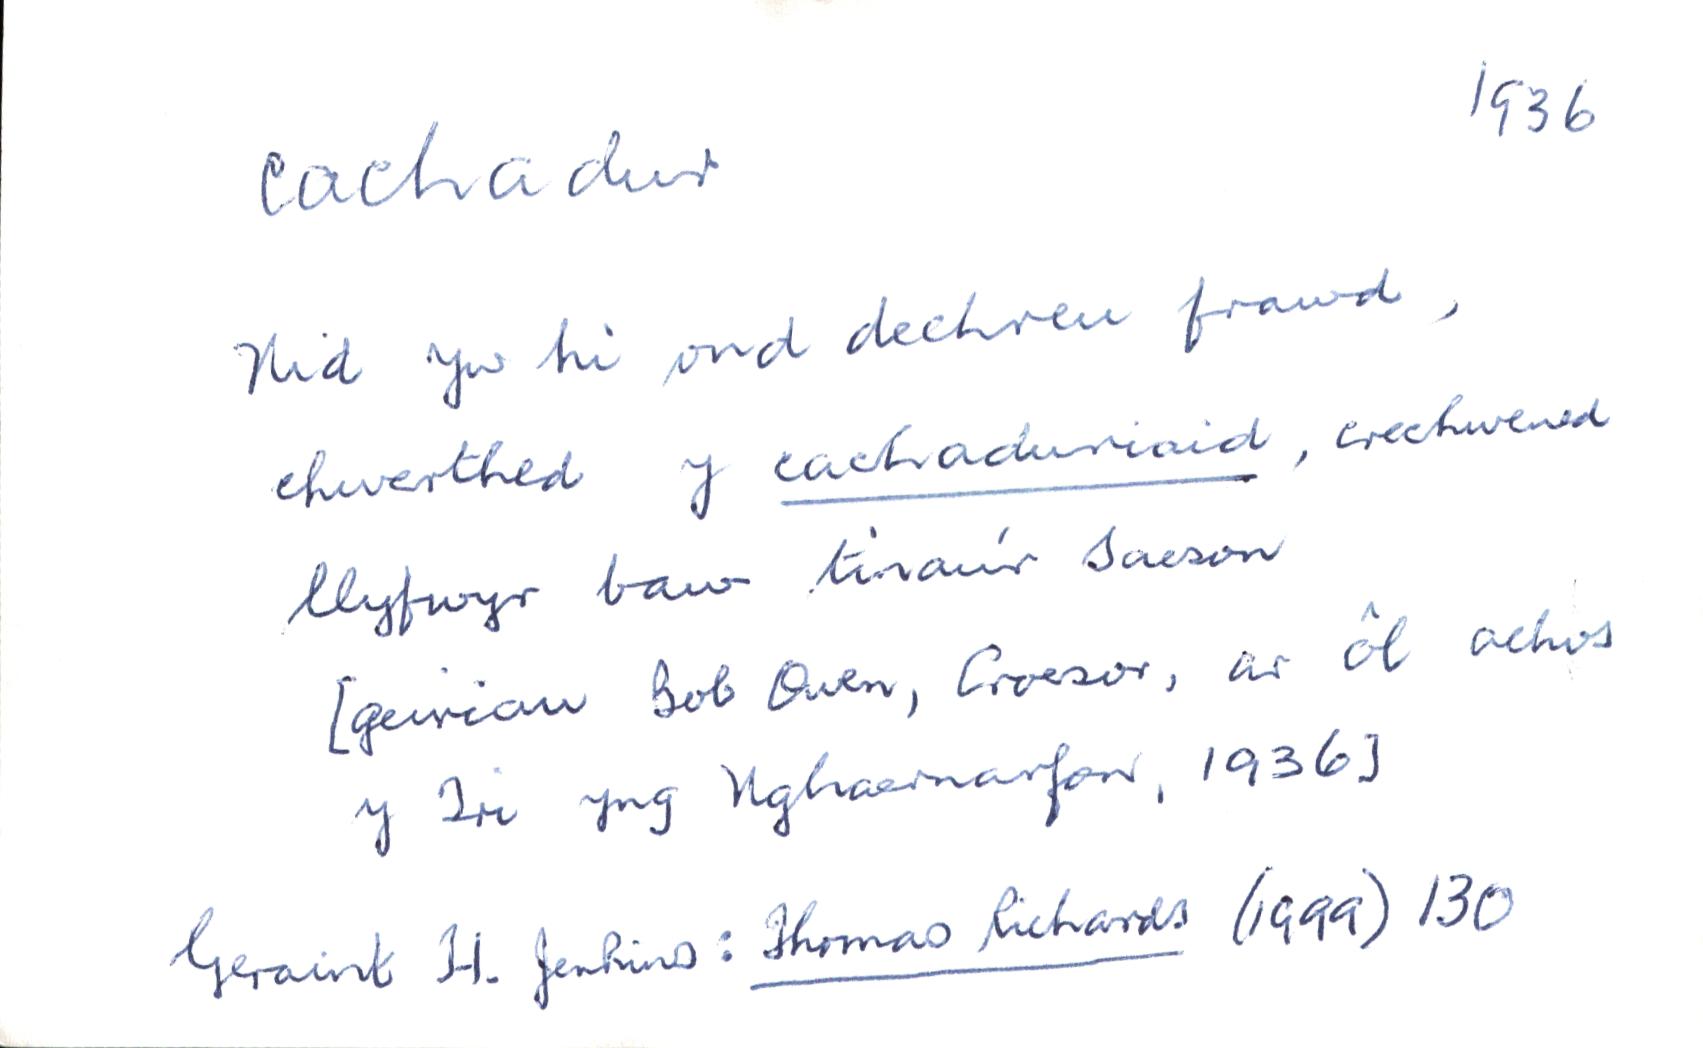 1936
cachadur
Nid yw hi ond dechreu frawd,
chwerthed y cachaduriaid, crechwened
llyfwyr baw tinau'r Saeson
[geiriau Bob Owen, Croesor, ar ôl achos
y Tri yng Nghaernarfon, 1936]
Geraint H. Jenkins: Thomas Richards (1999) 130